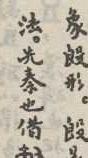 象殷形。殷
法。先秦也借